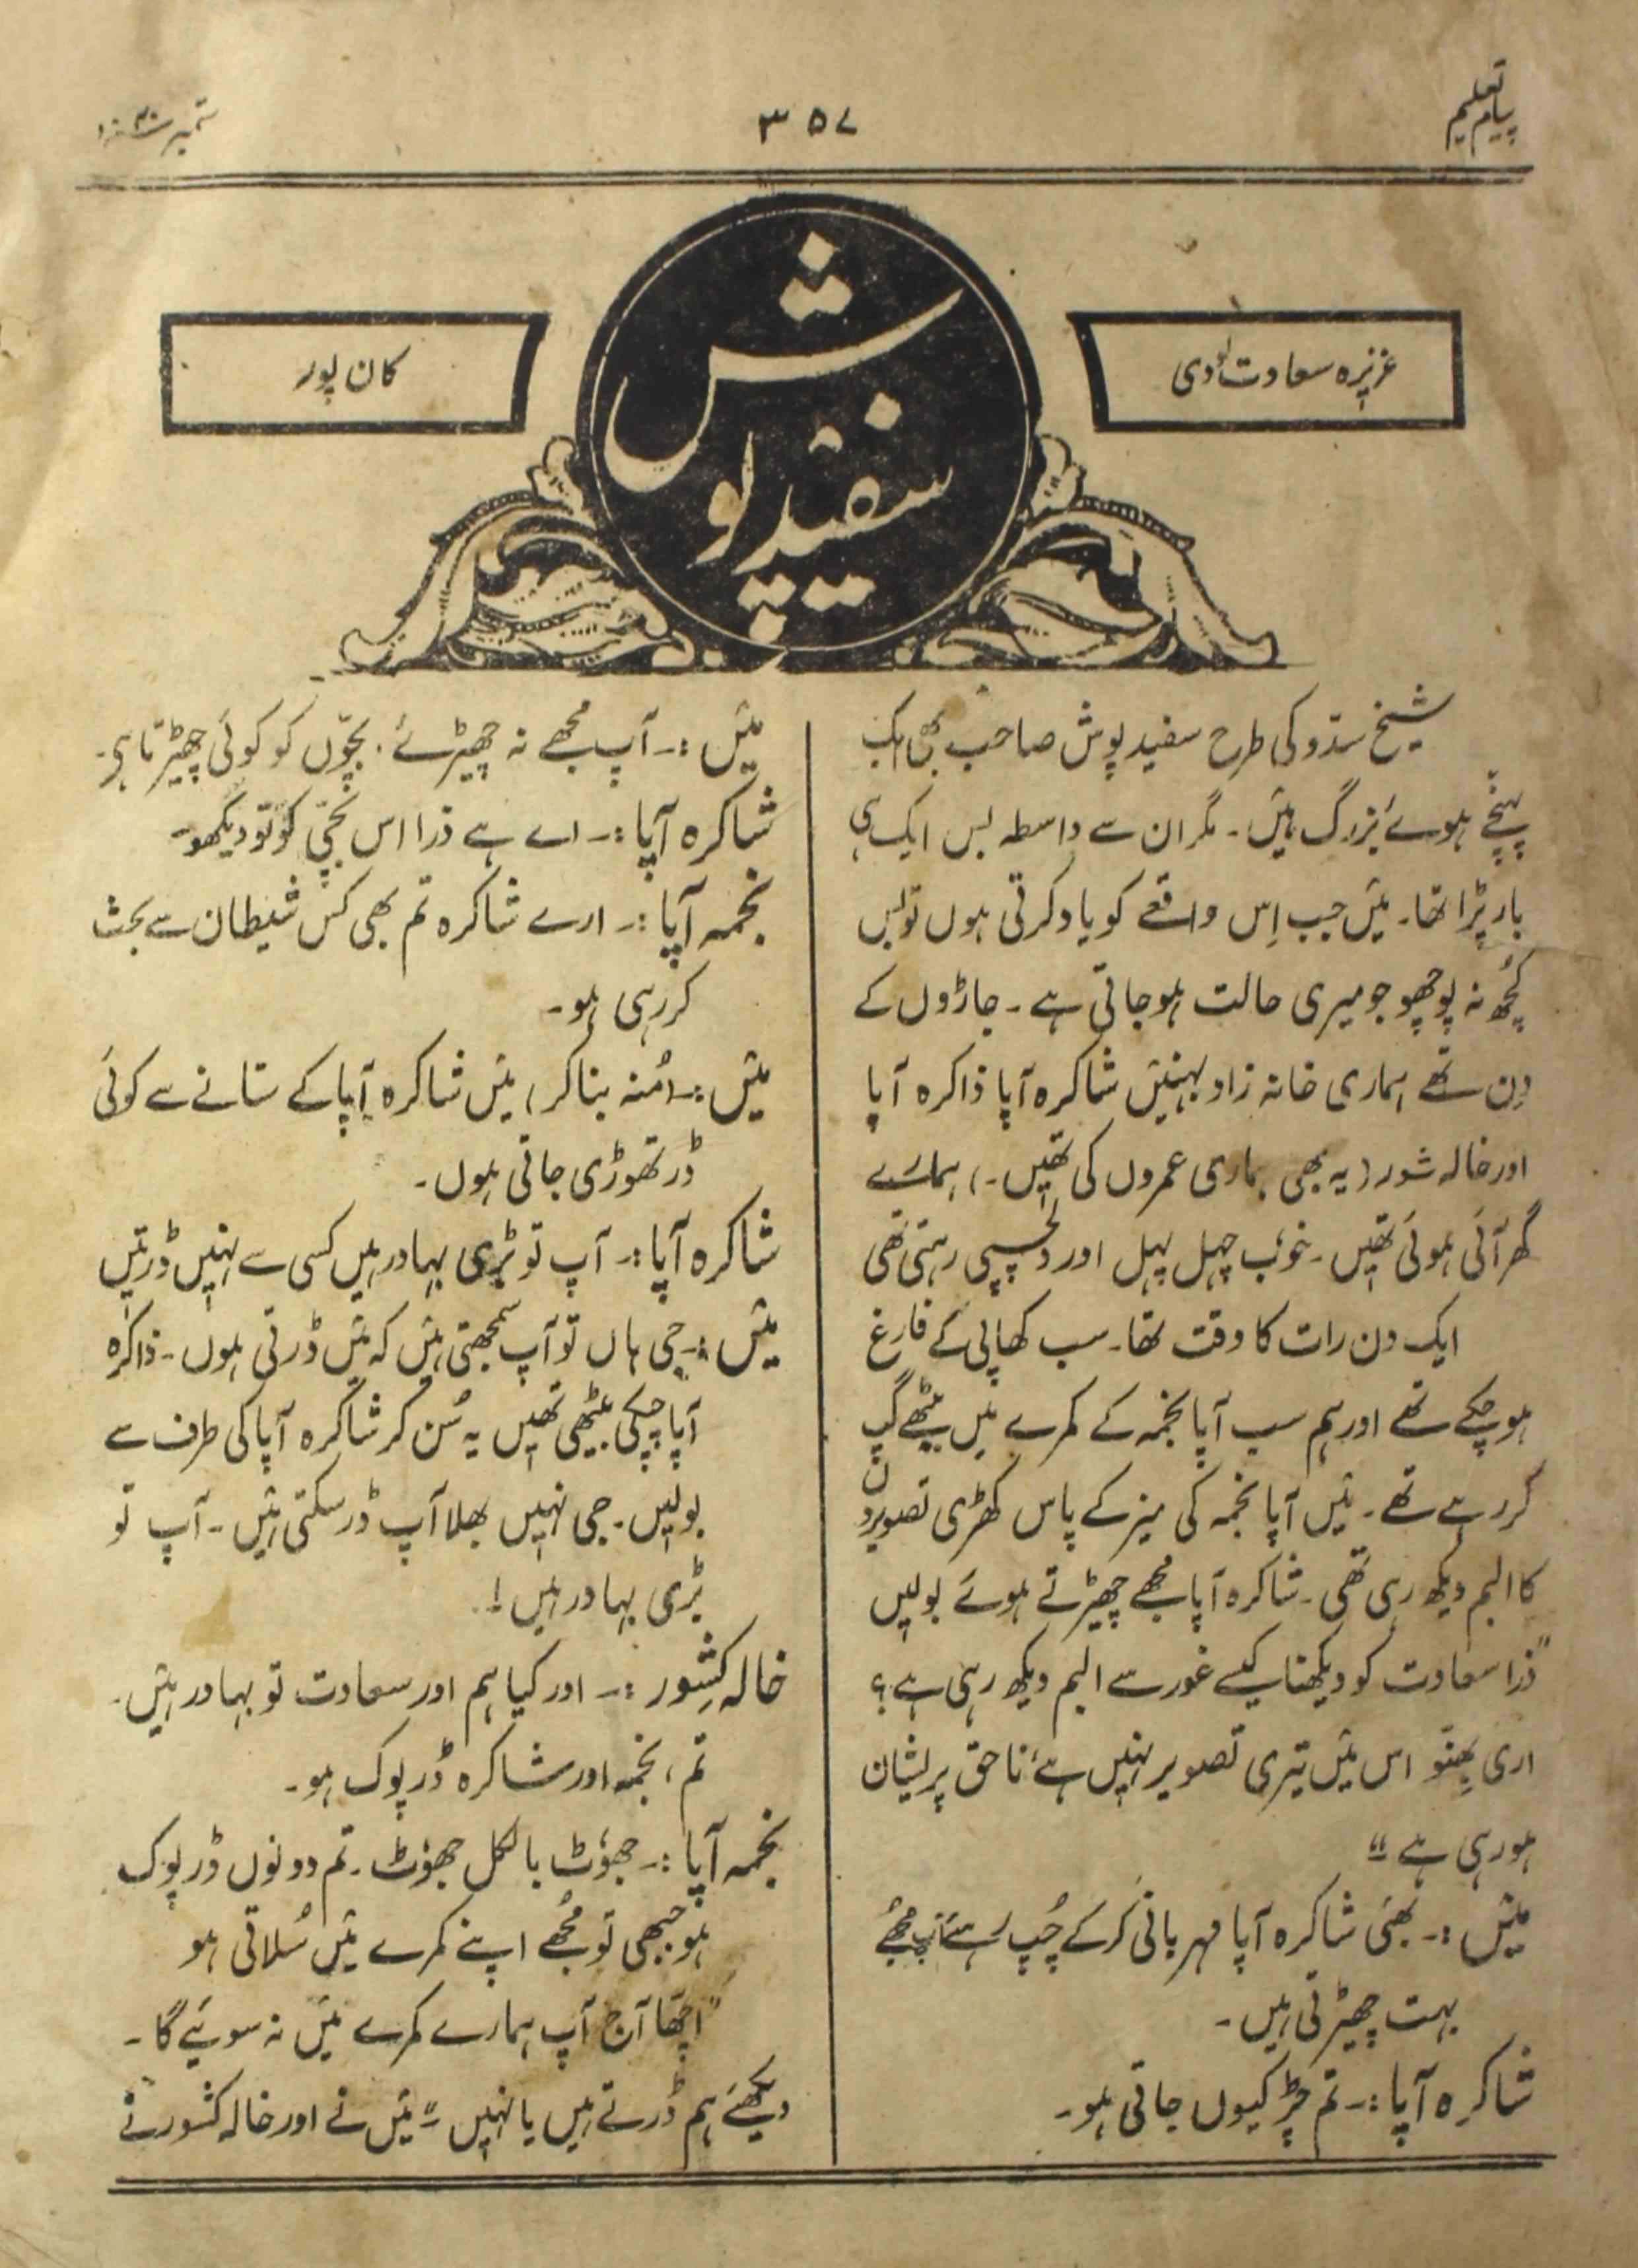 پیام تعلیم
۳۵۷
ستمبر ۴۰ء
سفید پوش
عزیزہ سعادت لودی
کان پور
شیخ سدّو کی طرح سفید پوش صاحب بھی ایک
پہنچے ہوئے بزرگ ہیں۔ مگر ان سے واسطہ بس ایک ہی
بار پڑا تھا۔ میَں جب اِس واقعے کو یاد کرتی ہوں تو بس
کُچھ نہ پوچھو جو میری حالت ہو جاتی ہے۔ جاڑوں کے
دِن تھے ہماری خالہ زاد بہنیَں شاکرہ آپا ذاکرہ آپا
اور خالہ شور (یہ بھی ہماری عمروں کی تھیں۔) ہمارے
گھر آئی ہوئی تھیں۔ خوب چہل پہل اور دلچسپی رہتی تھی
ایک دن رات کا وقت تھا۔ سب کھا پی کے فارغ
ہو چکے تھے اور ہم سب آپا نجمہ کے کمرے میں بیٹھے گپ
کر رہے تھے۔ میَں آپا نجمہ کی میز کے پاس کھڑی تصویروں
کا البم دیکھ رہی تھی۔ شاکرہ آپا مجھے چھیڑتے ہوئے بولیں
"ذرا سعادت کو دیکھنا کیسے غور سے البم دیکھ رہی ہے؟
اری بھِنّو اس میَں تیری تصویر نہیں ہے ناحق پریشان
ہو رہی ہے"
میَں :۔ بھئی شاکرہ آپا مہربانی کرکے چُپ رہئے آپ مجھے
بہت چھیڑتی ہیں۔
شاکرہ آپا :۔ تم چڑ کیوں جاتی ہو۔
میَں :۔ آپ مجھے نہ چھیڑئے۔ بچّوں کو کوئی چھیڑتا ہی۔
شاکرہ آپا :۔ اے ہے ذرا اس بچّی کو تو دیکھو۔
نجمہ آپا :۔ ارے شاکرہ تم بھی کس شیطان سے بحث
کر رہی ہو۔
میَں :۔ (مُنہ بنا کر) میَں شاکرہ آپا کے ستانے سے کوئی
ڈر تھوڑی جاتی ہوں۔
شاکرہ آپا :۔ آپ تو بڑی بہادر ہیں کسی سے نہیں ڈرتیں
میَں :۔ جی ہاں تو آپ سمجھتی ہیَں کہ میَں ڈرتی ہوں۔ ذاکرہ
آپا چپکی بیٹھی تھیں یہ سُن کر شاکرہ آپا کی طرف سے
بولیں۔ جی نہیں بھلا آپ ڈر سکتی ہیَں۔ آپ تو
بڑی بہادر ہیں!
خالہ کِشور :۔ اور کیا ہم اور سعادت تو بہادر ہیَں۔
تم، نجمہ اور شاکرہ ڈرپوک ہو۔
نجمہ آپا :۔ جھوٗٹ بالکل جھوٗٹ۔ تم دونوں ڈرپوک
ہو جبھی تو مُجھے اپنے کمرے میَں سُلاتی ہو
"اچّھا آج آپ ہمارے کمرے میَں نہ سوئیے گا۔
دیکھئے ہم ڈرتے ہیں یا نہیں" میَں نے اور خالہ کشور نے